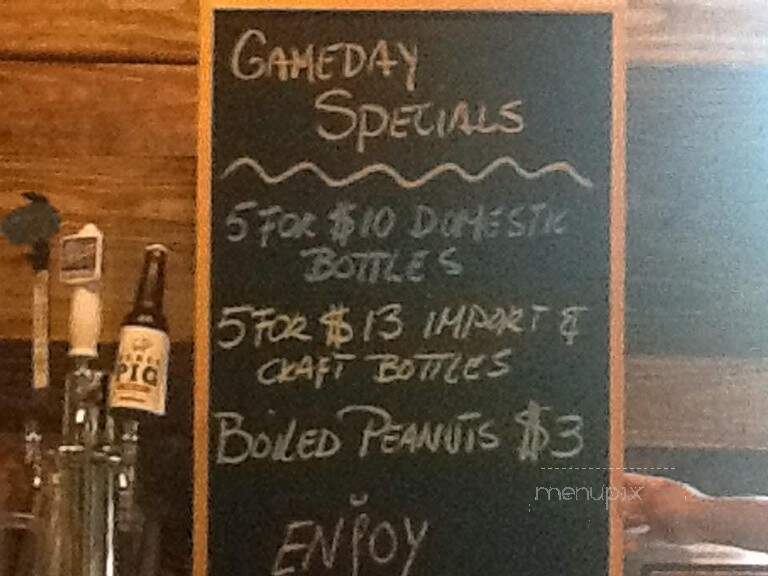 GAMEDAY
SPECIALS
5 FOR $10 DOMESTIC
BOTTLES
5 FOR $13 IMPORT &
CRAFT BOTTLES
BOILED PEANUTS $3
ENJOY
PIG
menupix